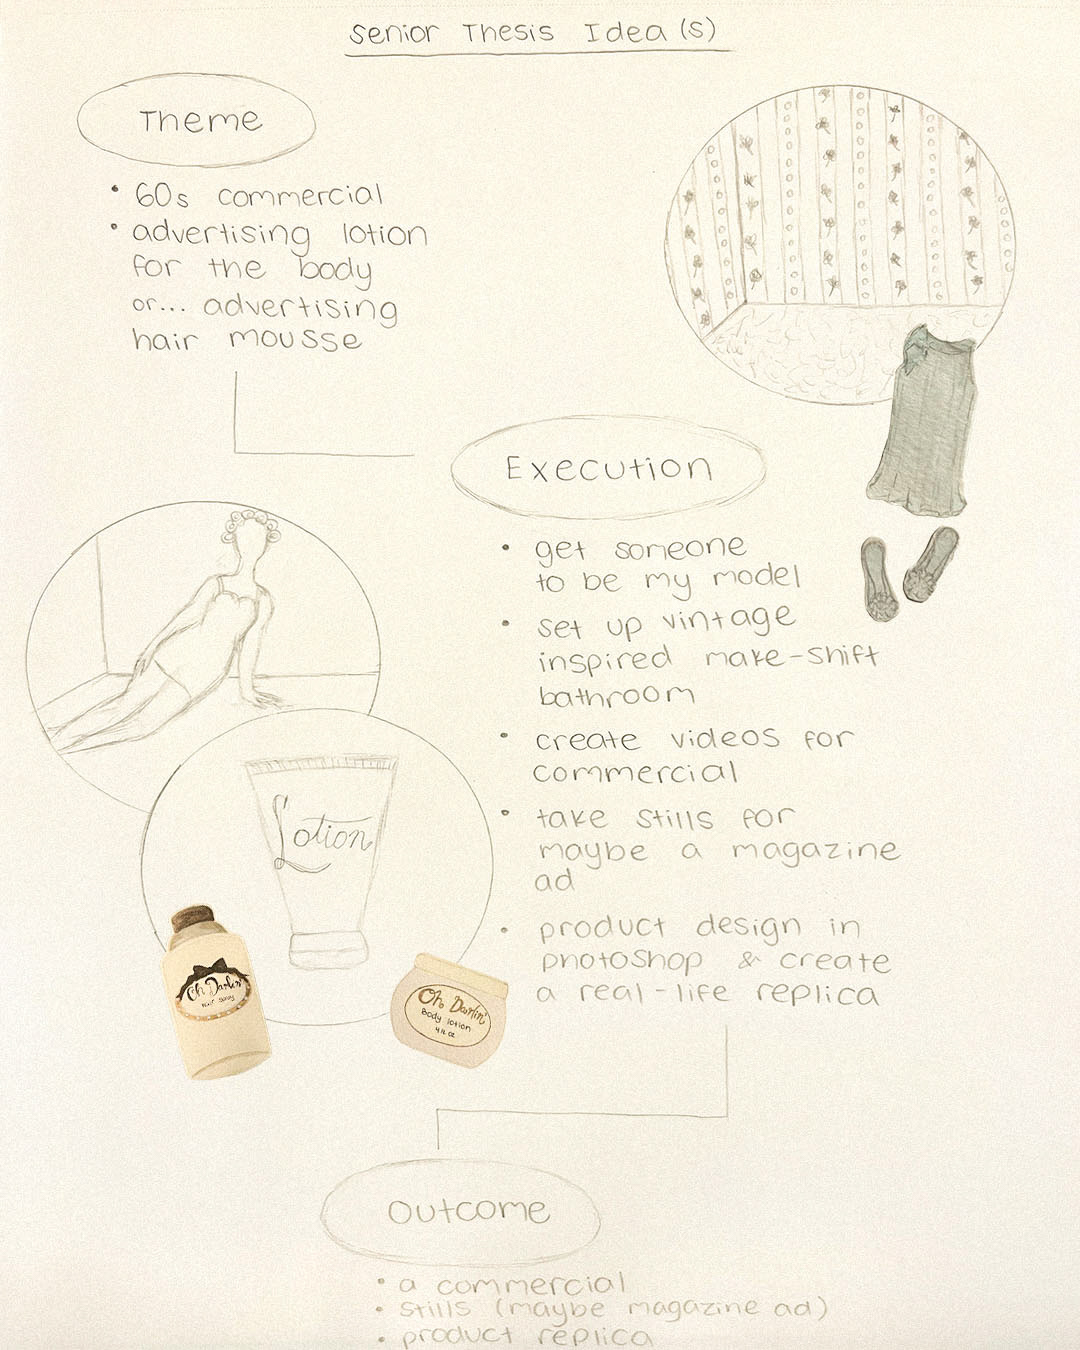 Senior Thesis Idea(s)
Theme
• 60s commercial
• advertising lotion
for the body
or... advertising
hair mousse
Execution
• get someone
to be my model
• set up vintage
inspired make-shift
bathroom
• create videos for
commercial
• take stills for
maybe a magazine
ad
• product design in
photoshop & create
a real-life replica
Lotion
Oh Darlin'
Hair Spray
Oh Darlin'
Body lotion
4 fl oz
Outcome
• a commercial
• stills (maybe magazine ad)
• product replica